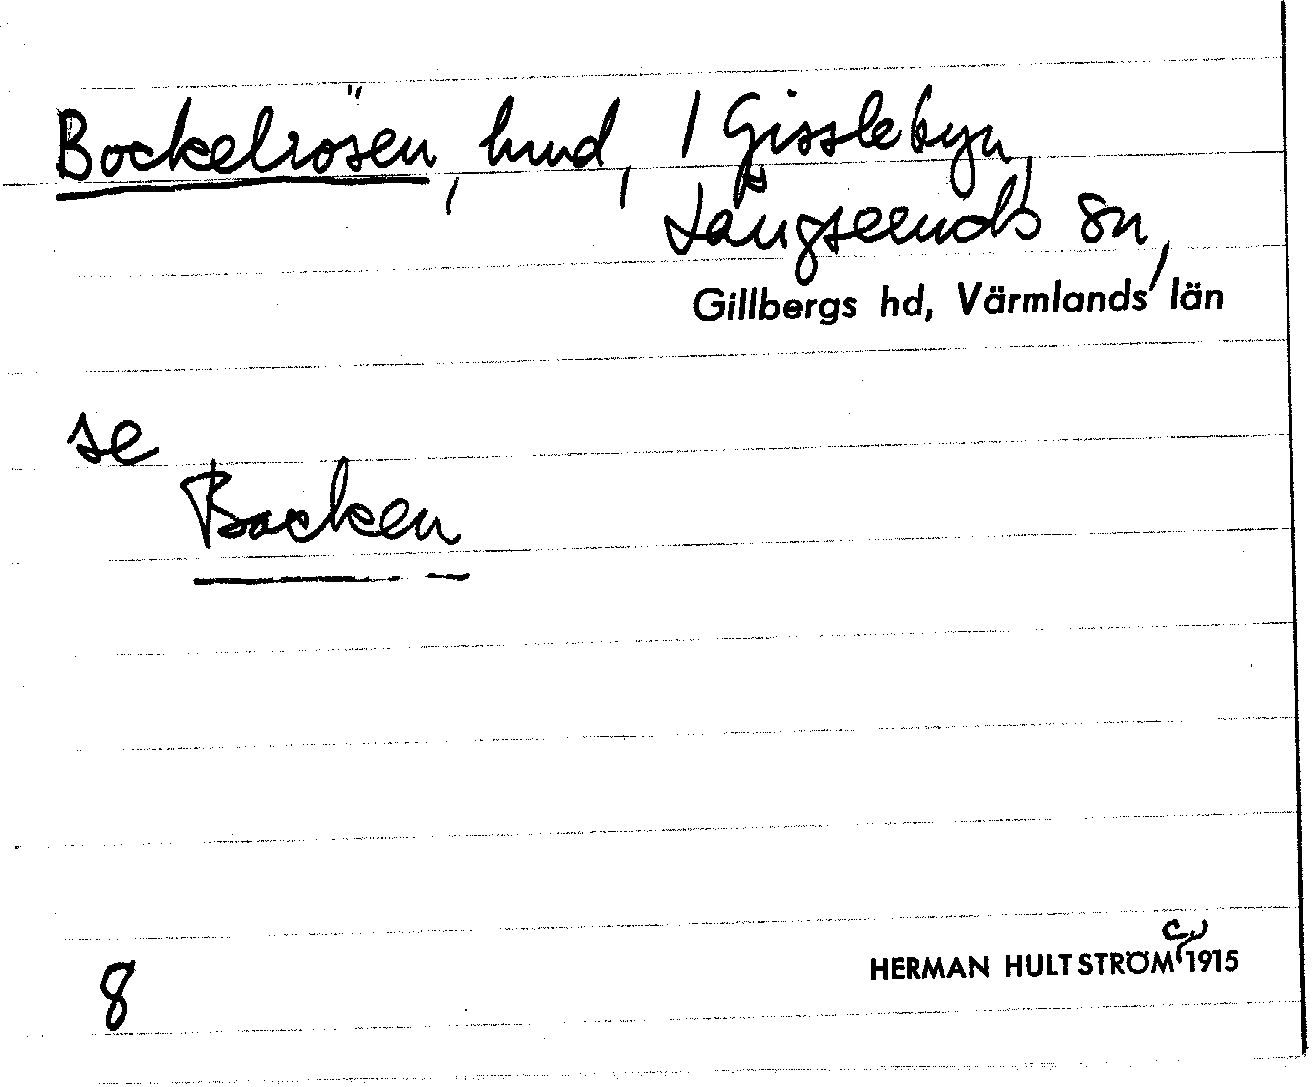 Bockelrösen, hmd, i Gisslebyn,
Långseruds sn,
Gillbergs hd, Värmlands län
se
Backen
8
HERMAN HULTSTRÖM 1915